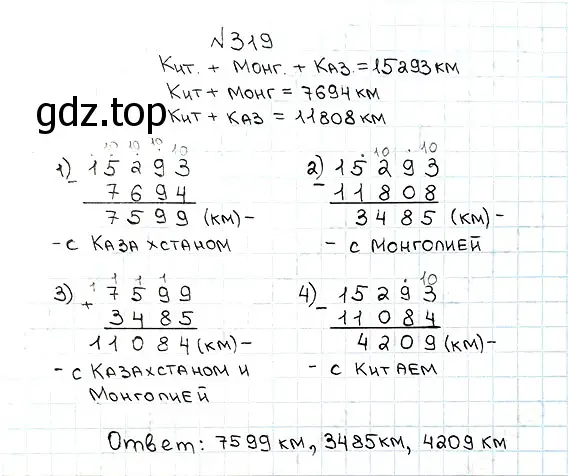 №319
Кит. + Монг. + Каз. = 15293 км
Кит + Монг = 7694 км
gdz.top
Кит + Каз = 11808 км
10 10 10 10
1) 15293
- 7694
7599 (км) -
- с Казахстаном
10 10
2) 15293
- 11808
3485 (км) -
- с Монголией
1 1 1 1
3) 7599
+ 3485
11084 (км) -
- с Казахстаном и
Монголией
10
4) 15293
- 11084
4209 (км) -
- с Китаем
Ответ: 7599 км, 3485 км, 4209 км